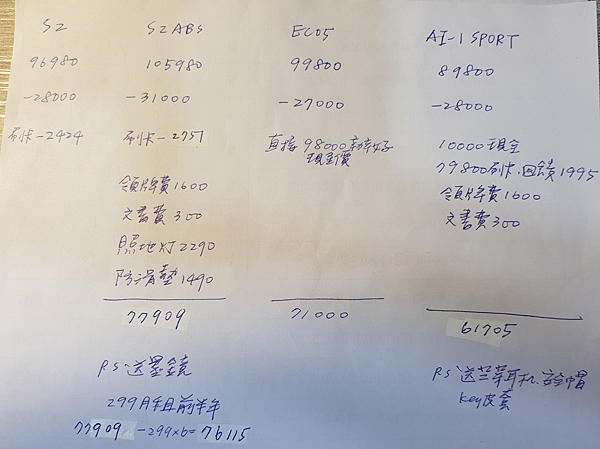 S2
96980
-28000
刷卡-2424
S2ABS
105980
-31000
刷卡-2751
領牌費1600
文書費300
照地灯2290
防滑墊1490
77909
PS.送墨鏡
299月租前半年
77909 -299x6= 76115
EC05
99800
-27000
直接98000辦好
現金價
71000
AI-1 SPORT
89800
-28000
10000現金
79800刷卡.回饋1995
領牌費1600
文書費300
61705
PS 送藍芽耳机.安全帽
Key皮套